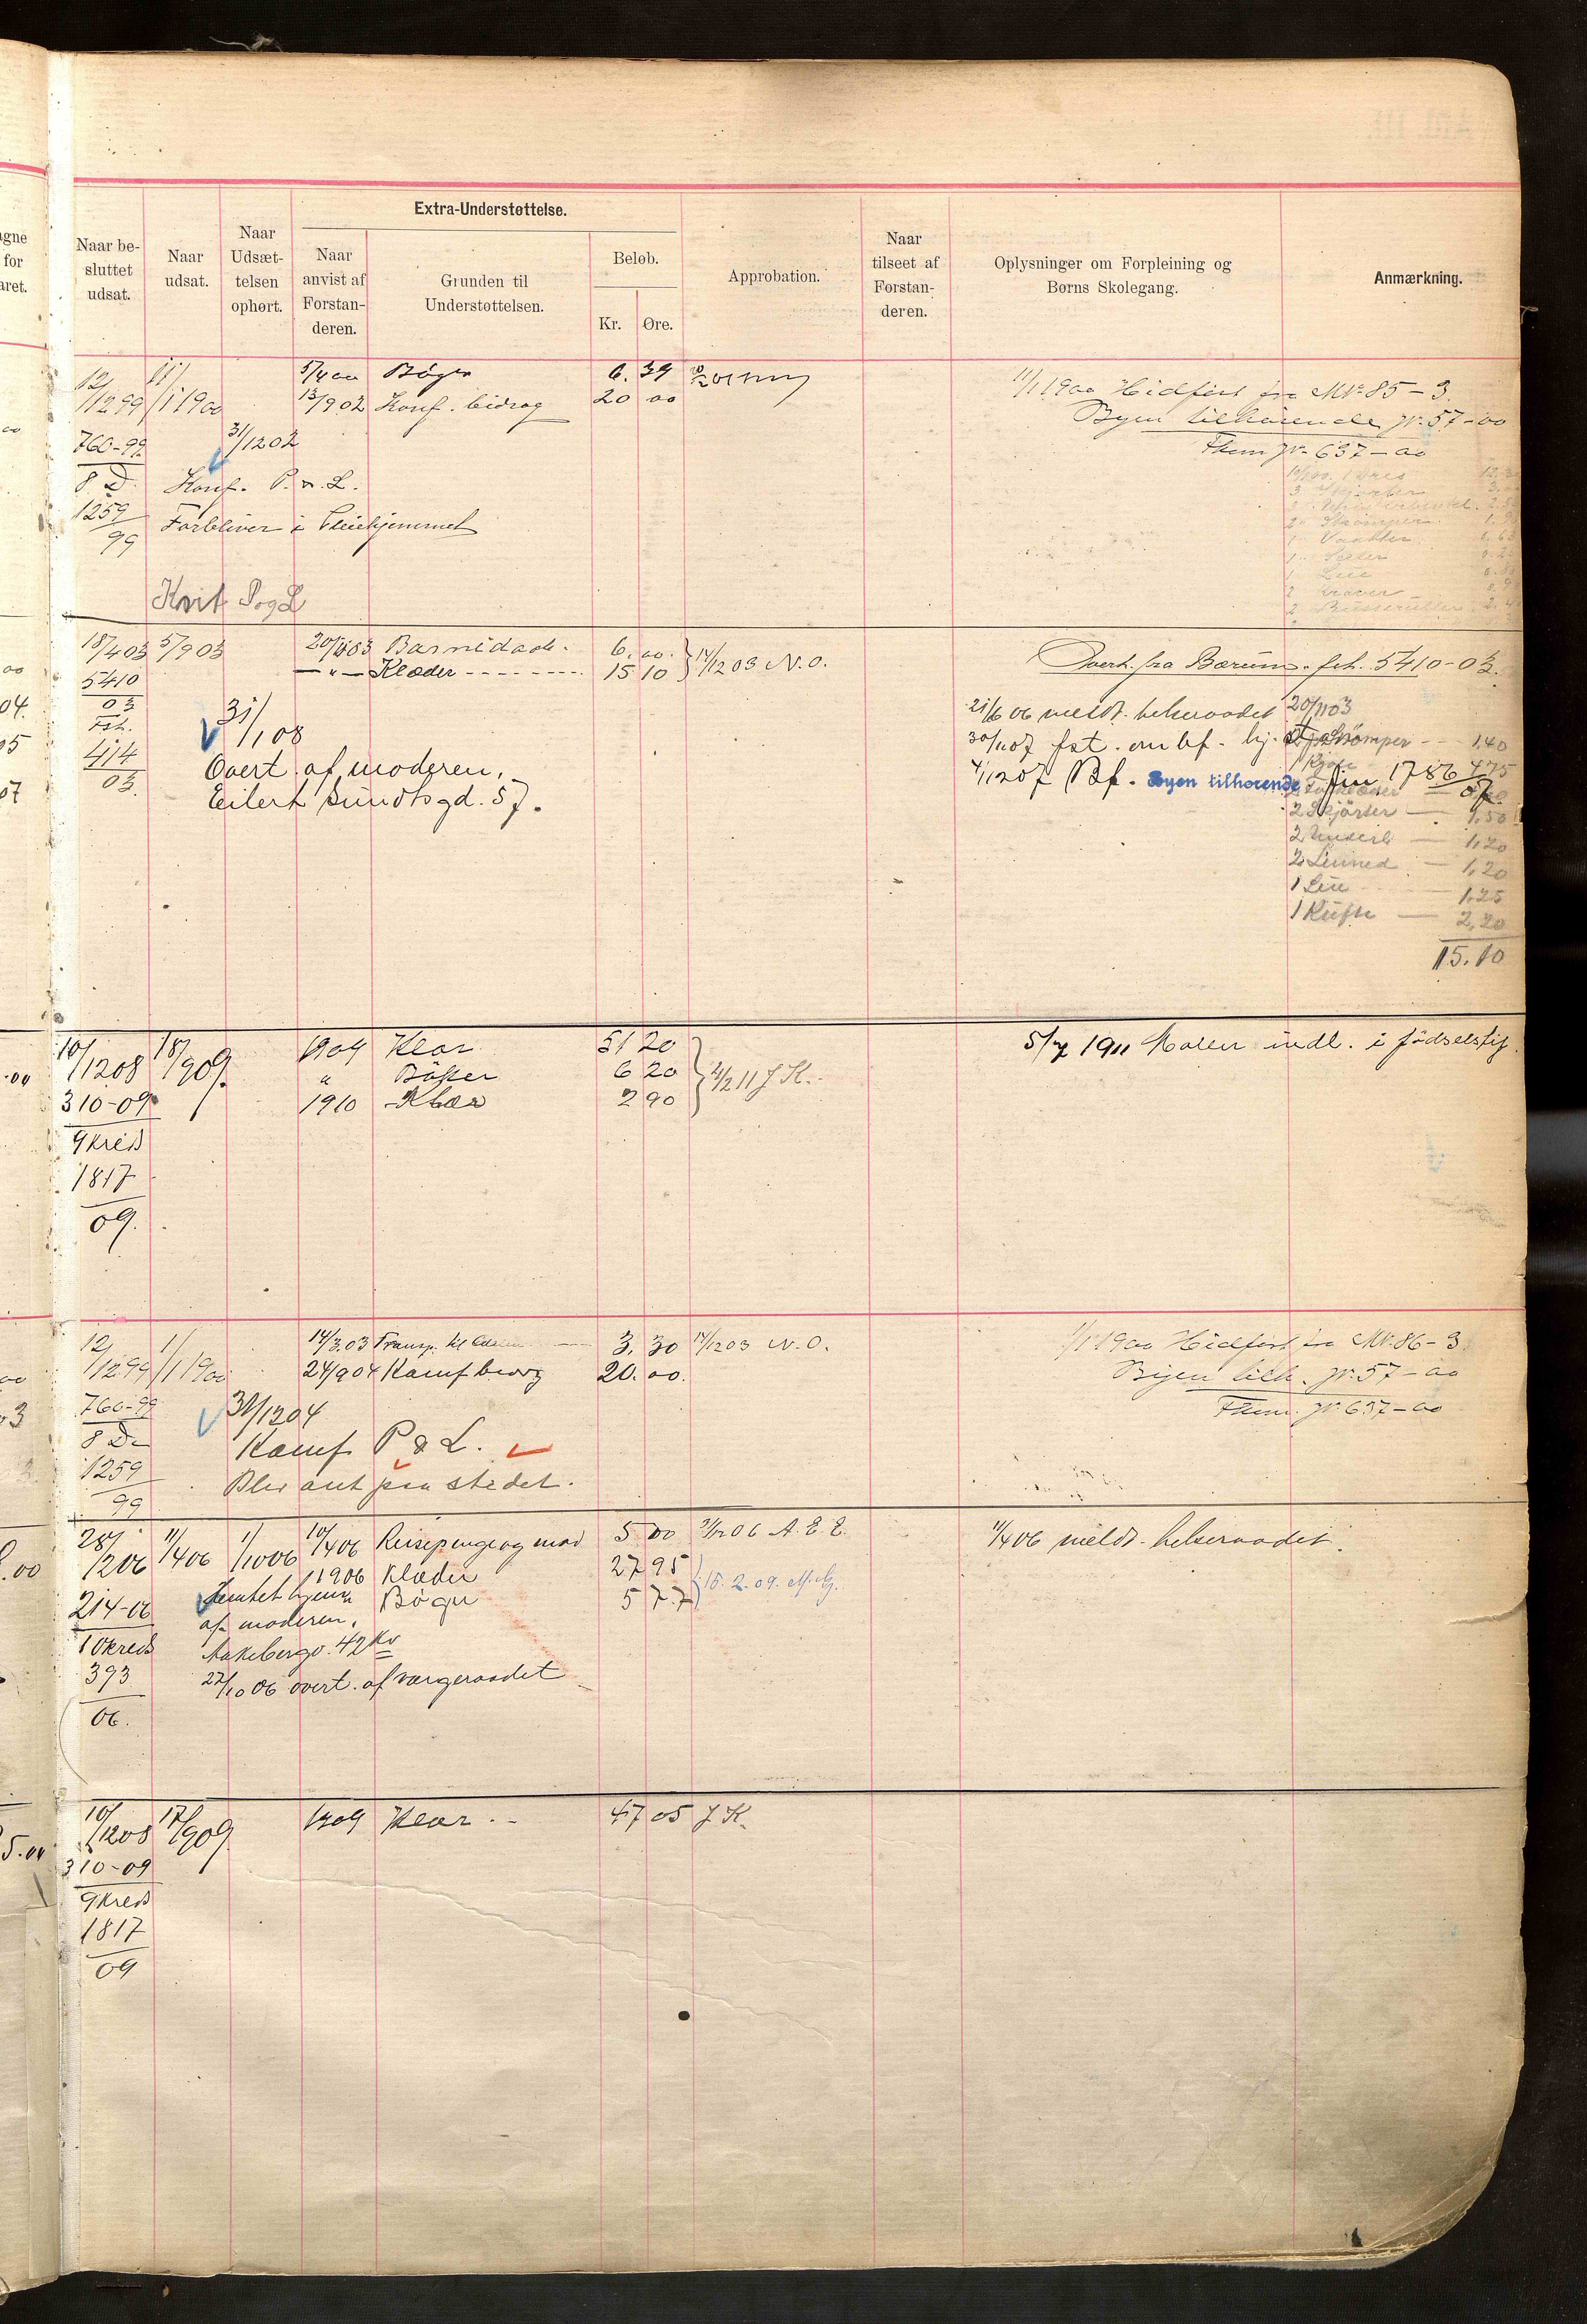 Extra-Understøttelse.
Naar be-
sluttet
udsat.
Naar
udsat.
Naar
Udsæt-
telsen
ophørt.
Naar
anvist af
Forstan-
deren.
Grunden til
Understøttelsen.
Beløb.
Kr.
Øre.
Approbation.
Naar
tilseet af
Forstan-
deren.
Oplysninger om Forpleining og
Børns Skolegang.
Anmærkning.
12/12 99 1/1 1900 5/4 00 Bøger 6. 39
13/9 02 Konf. bidrag 20 00
31/12 02
760-99
8 D.
1259
99
Konf. P. & L.
Forbliver i Pleiehjemmet
Kvit P og L
1/1 1900 Hidført fra M Nr 85-3.
Byen tilhørende jr. 57-00
Fhem jr. 637-00
18/4 03 5/9 03 Barnidaab. 6. 00.
—"— Klæder 15 10 14/12 03 N.O.
5410
03
Fst.
414
03.
31/1 08
Overt. af moderen,
Eilert Sundtsgd. 57.
Overt. fra Bærum. fsh. 5410-03.
21/6 06 meldt. helseraadet
30/11 07 fat. om bf. hj.
4/12 07 Bf. Byen tilhørende Jm 1786
07.
20/11 03
Strømper 1.40
1 Kjole 4.75
2 Skjörter 1.50
2 Underli 1,20
2 Linned 1,20
1 Liv 1.25
1 Kufte 2,20
15.10
10/12 08 18/9 09. 1909 Klær 51 20
" Bøker 6 20
1910 Klær 2 90
4/2 11 J K.
310-09
9 kreds
1817
09.
5/7 1911 Moren indl. i fødselsstif.
12/12 99 1/1 1900 14/3.03 Transp. til 3, 30 14/12 03 N.O.
24/9 04 Konfbidrg 20. 00.
760-99
8 D
1259
99
31/12 04
Konf P & L.
Blir ant paa stedet.
1/1 1900 Hidført fra M Nr. 86-3
Byen tilh. jr. 57-00
Fhem. jr. 637-00
28/2 06 11/4 06 1/10 06 10/4 06 Reisepenge og mad 5 00 31/12 06 A.E.E.
1906 Klæder 27 95
Bøger 5 77 15.2.09. M.G.
214-06
10 kreds
393
06.
Hentet hjem
af moderen,
Aakebergv. 42 Kv
27/10 06 overt. af værgeraadet
11/4 06 meldt. helseraadet.
10/12 08 17/9 09. 1909 Klær 47 05 J K.
310-09
9 kreds
1817
09